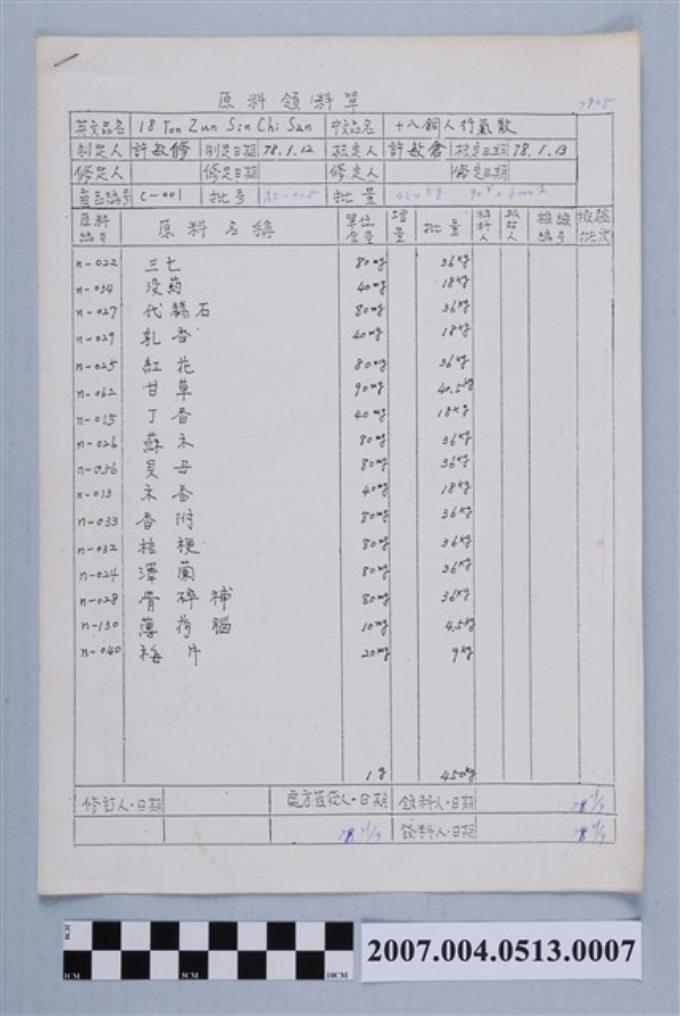 原料領料單
7805
英文品名 18 Ton Zun Sin Chi San 中文品名 十八銅人行氣散
制定人 許敏修 制定日期 78.1.12 核定人 許敏倉 核定日期 78.1.13
修定人 修定日期 修定人 修定日期
產品編号 C-001 批号 批量 450kg
原料編号 原料名稱 單位含量 增量 批量 檢驗編号
n-022 三七 80mg 36kg
n-034 没药 40mg 18kg
n-027 代赭石 80mg 36kg
n-029 乳香 40mg 18kg
n-025 紅花 80mg 36kg
n-062 甘草 90mg 40.5kg
n-015 丁香 40mg 18kg
n-026 蘇木 80mg 36kg
n-056 貝母 80mg 36kg
n-013 木香 40mg 18kg
n-033 香附 80mg 36kg
n-032 桔梗 80mg 36kg
n-024 澤蘭 80mg 36kg
n-028 骨碎補 80mg 36kg
n-130 薄荷腦 10mg 4.5kg
n-040 梅片 20mg 9kg
1g 450kg
修訂人·日期 處方簽發人·日期 領料人·日期
發料人·日期
2007.004.0513.0007
1CM 5CM 10CM
3CM